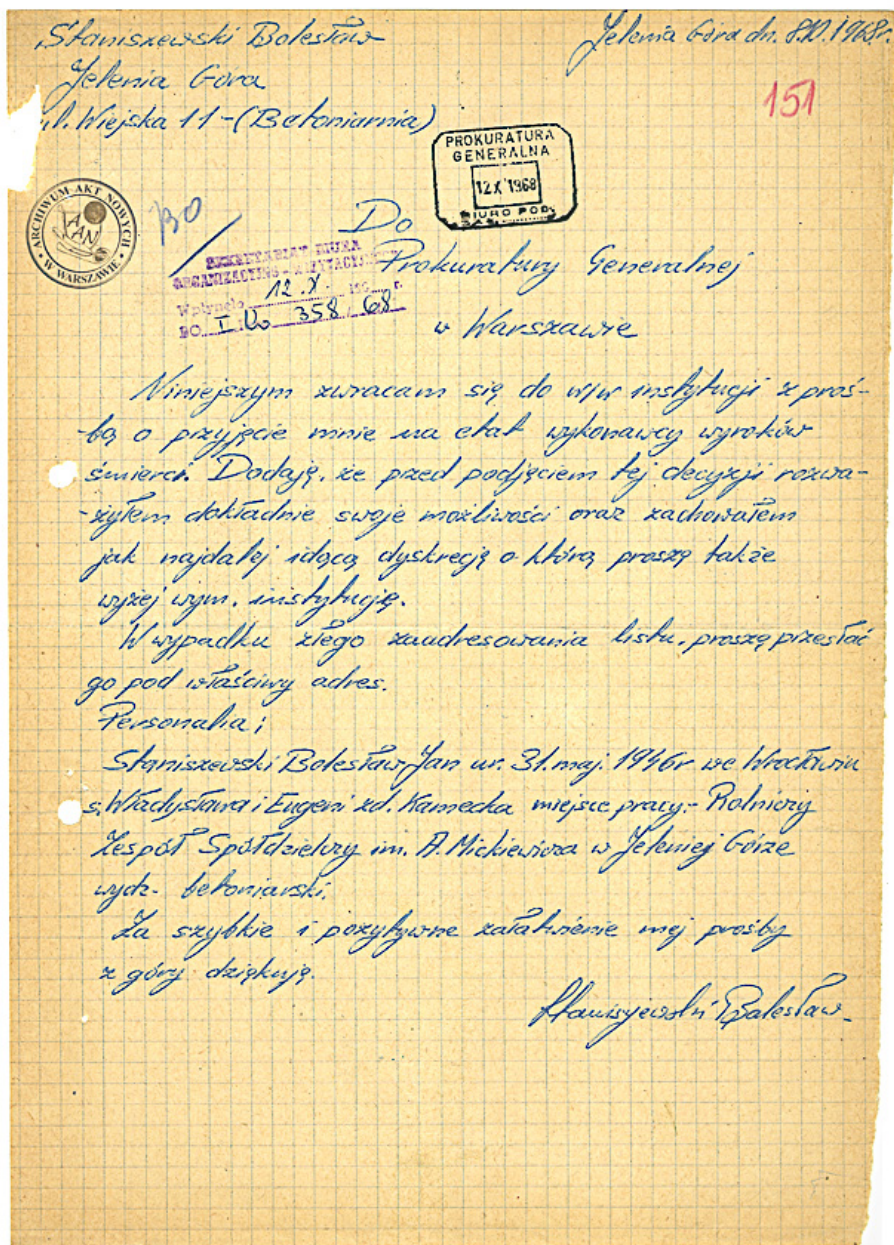 Staniszewski Bolesław
Jelenia Góra dn. 8.10.1968r.
Jelenia Góra
ul. Wiejska 11-(Betoniarnia)
151
PROKURATURA
GENERALNA
12 X 1968
BIURO POD.
ARCHIWUM AKT NOWYCH
AAN
W WARSZAWIE
Do
Prokuratury Generalnej
SEKRETARIAT BIURA
Wpłynęło 12.X. 196 r.
BO I Ko 358/68
w Warszawie
Niniejszym zwracam się do w/w instytucji z proś-
-bą o przyjęcie mnie na etat wykonawcy wyroków
śmierci. Dodaję, że przed podjęciem tej decyzji rozwa-
-żyłem dokładnie swoje możliwości oraz zachowałem
jak najdalej idącą dyskrecję o którą proszę także
wyżej wym. instytucję.
W wypadku złego zaadresowania listu, proszę przesłać
go pod właściwy adres.
Personalia;
Staniszewski Bolesław Jan ur. 31. maj. 1946r we Wrocławiu
s. Władysława i Eugeni zd. Kamecka miejsce pracy:- Rolniczy
Zespół Spółdzielczy im. A. Mickiewicza w Jeleniej Górze
wydz. betoniarski.
Za szybkie i pozytywne załatwienie mej prośby
z góry dziękuję.
Staniszewski Bolesław